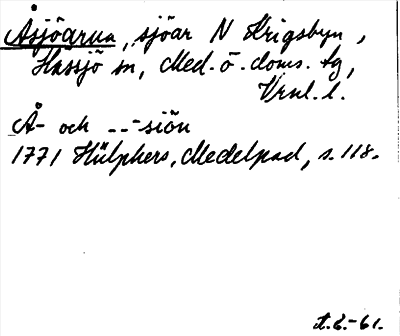 Åsjöarna, sjöar N Krigsbyn,
Hässjö sn, Med. ö. doms. tg,
Vrnl. l.
Å- och ---siön
1771 Hülphers, Medelpad, s. 118.